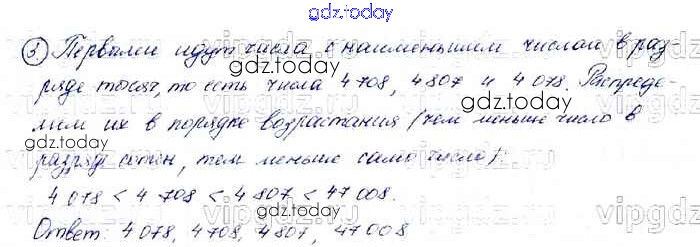 gdz.today
3. Первыми идут числа с наименьшим числом в раз
gdz.today
ряде тысяч, то есть числа 4 708, 4 807 и 4 078. Распреде-
gdz.today
лим их в порядке возрастания (чем меньше число в
разряде сотен, тем меньше само число):
gdz.today
4 078 < 4 708 < 4 807 < 47 008.
gdz.today
Ответ: 4 078, 4 708, 4 807, 47 008